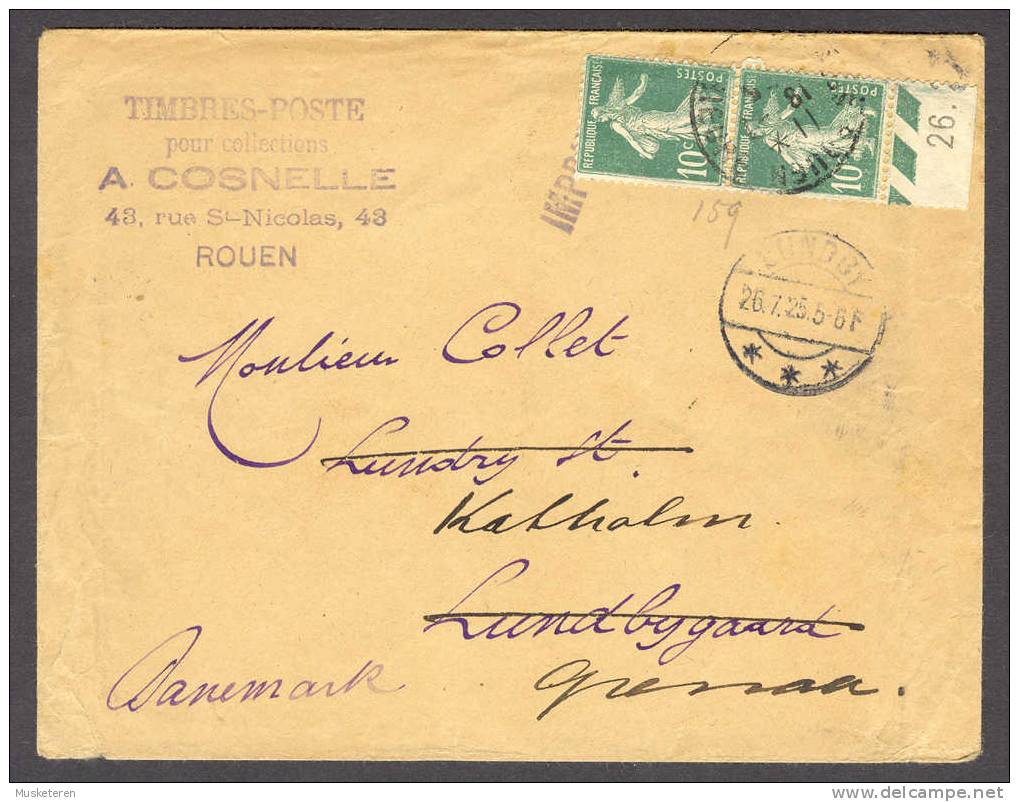 TIMBRES-POSTE
pour collections
A. COSNELLE
43, rue St-Nicolas, 43
ROUEN
REPUBLIQUE FRANÇAISE
POSTES
10c
REPUBLIQUE FRANÇAISE
POSTES
10
26.
IMPR
159
LUNDBY
26.7.25.5-6F
Monsieur Collet
Lundby St.
Katholm.
Lundbygaard
Grenaa.
Danemark
Musketeren
delcampe.net